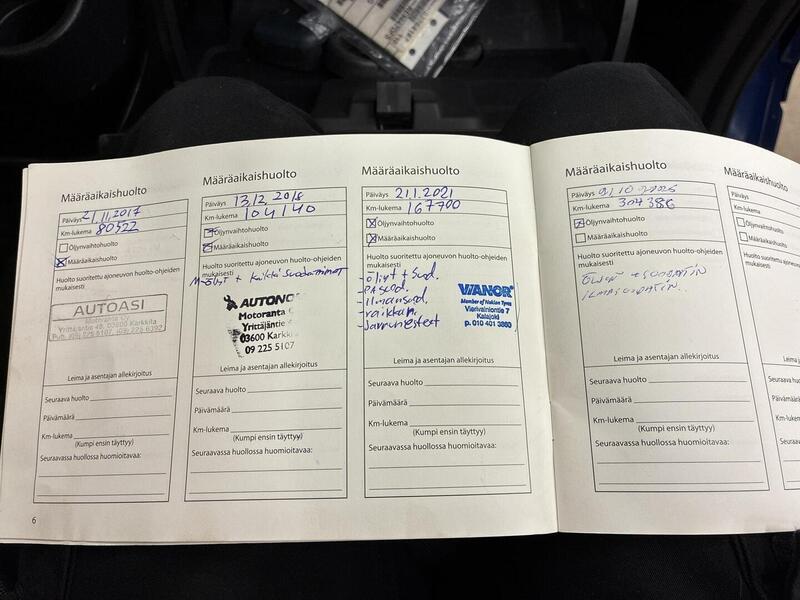 Määräaikaishuolto
Päiväys 21.11.2017
Km-lukema 80522
Öljynvaihtohuolto
Määräaikaishuolto
Huolto suoritettu ajoneuvon huolto-ohjeiden
mukaisesti
AUTOASI
Motoranta Oy
Yrittäjäntie 48, 03600 Karkkila
Leima ja asentajan allekirjoitus
Seuraava huolto
Päivämäärä
Km-lukema
(Kumpi ensin täyttyy)
Seuraavassa huollossa huomioitavaa:
6
Määräaikaishuolto
Päiväys 13/2 2018
Km-lukema 104140
Öljynvaihtohuolto
Määräaikaishuolto
Huolto suoritettu ajoneuvon huolto-ohjeiden
mukaisesti
M-öljyt + kaikki suodattimet
AUTONO
Motoranta
Yrittäjäntie
03600 Karkki
09 225 5107
Leima ja asentajan allekirjoitus
Seuraava huolto
Päivämäärä
Km-lukema
(Kumpi ensin täyttyy)
Seuraavassa huollossa huomioitavaa:
Määräaikaishuolto
Päiväys 21.1.2021
Km-lukema 167700
Öljynvaihtohuolto
Määräaikaishuolto
Huolto suoritettu ajoneuvon huolto-ohjeiden
mukaisesti
-öljyt + suod.
-PA suod.
-ilmansuod.
-raikkain.
-Jarrunesteet
VIANOR
Member of Nokian Tyres
Vierivainiontie 7
Kalajoki
p. 010 401 3860
Leima ja asentajan allekirjoitus
Seuraava huolto
Päivämäärä
Km-lukema
(Kumpi ensin täyttyy)
Seuraavassa huollossa huomioitavaa:
Määräaikaishuolto
Päiväys 10 2025
Km-lukema 304386
Öljynvaihtohuolto
Määräaikaishuolto
Huolto suoritettu ajoneuvon huolto-ohjeiden
mukaisesti
+ suodatin
Leima ja asentajan allekirjoitus
Seuraava huolto
Päivämäärä
Km-lukema
(Kumpi ensin täyttyy)
Seuraavassa huollossa huomioitavaa:
Määräaikaishuol
Päiväys
Km-lukema
Öljynvaihtohuolto
Määräaikaishuolto
Huolto suoritettu ajon
mukaisesti
Leima ja
Seuraava huolto
Päivämäärä
Km-lukema
Seuraavassa h